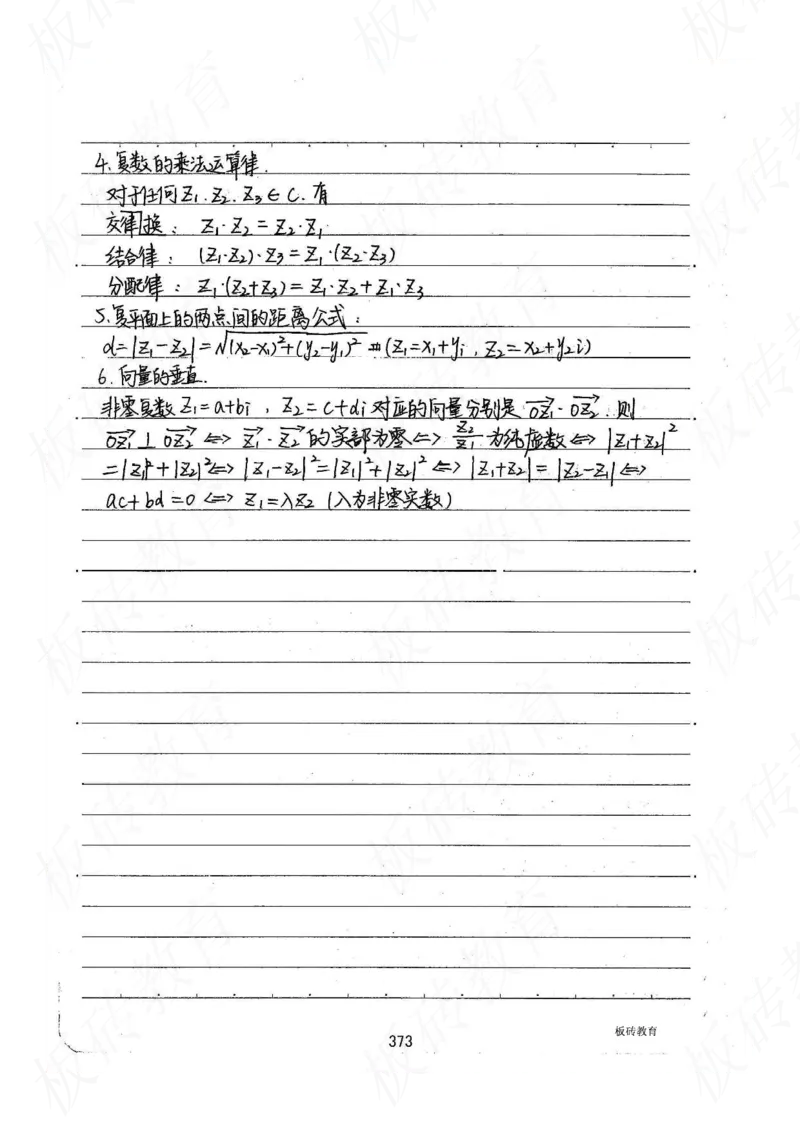 4.复数的乘法运算律.
对于任何Z₁.Z₂.Z₃∈C.有
交律换：Z₁·Z₂=Z₂·Z₁.
结合律：(Z₁·Z₂)·Z₃=Z₁·(Z₂·Z₃)
分配律：Z₁·(Z₂+Z₃)=Z₁·Z₂+Z₁·Z₃
5.复平面上的两点间的距离公式：
d=|Z₁-Z₂|=√(x₂-x₁)²+(y₂-y₁)² (Z₁=x₁+y₁i，Z₂=x₂+y₂i)
6.向量的垂直.
非零复数Z₁=a+bi，Z₂=c+di对应的向量分别是→OZ₁.→OZ₂.则
→OZ₁⊥→OZ₂⇔→Z₁·→Z₂的实部为零⇔Z₂/Z₁为纯虚数⇔|Z₁+Z₂|²
=|Z₁|²+|Z₂|²⇔|Z₁-Z₂|²=|Z₁|²+|Z₂|²⇔|Z₁+Z₂|=|Z₂-Z₁|⇔
ac+bd=0⇔Z₁=λZ₂(λ为非零实数)
板砖教育
373